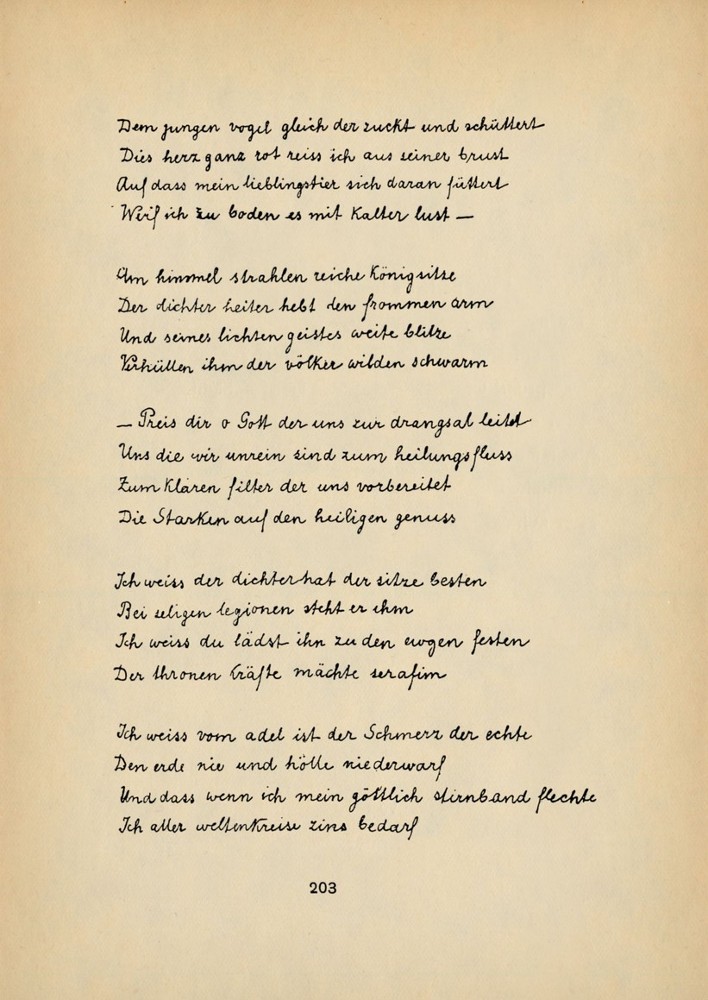 Dem jungen vogel gleich der zuckt und schüttert
Dies herz ganz rot reiss ich aus seiner brust
Auf dass mein lieblingstier sich daran füttert
Werf ich zu boden es mit kalter lust —
Am himmel strahlen reiche königsitze
Der dichter heiter hebt den frommen arm
Und seines lichten geistes weite blitze
Verhüllen ihm der völker wilden schwarm
— Preis dir o Gott der uns zur drangsal leitet
Uns die wir unrein sind zum heilungsfluss
Zum klaren filter der uns vorbereitet
Die Starken auf den heiligen genuss
Ich weiss der dichter hat der sitze besten
Bei seligen legionen steht er ihm
Ich weiss du lädst ihn zu den ewgen festen
Der thronen kräfte mächte serafim
Ich weiss vom adel ist der Schmerz der echte
Den erde nie und hölle niederwarf
Und dass wenn ich mein göttlich stirnband flechte
Ich aller weltenkreise zins bedarf
203